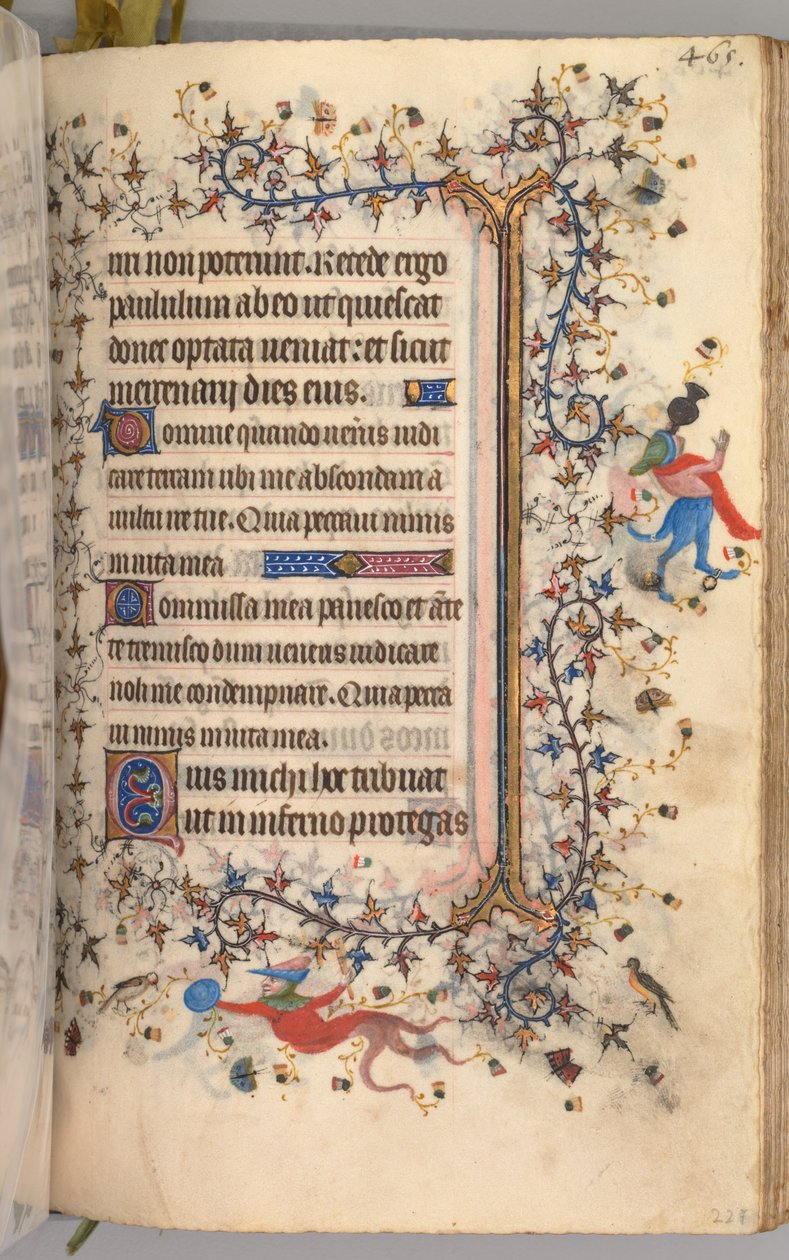 465.
mi non poterunt. Recede ergo
paululum ab eo ut quiescat
donec optata veniat: et sicut
mercenarij dies eius.
Domine quando veneris iudi
care terram ubi me abscondam a
vultu ire tue. Quia peccavi nimis
in vita mea
Commissa mea pavesco et ante
te eremisco dum veneris iudicare
noli me condempnare. Quia pecca
vi nimis in vita mea.
Quis michi hoc tribuat
ut in inferno protegas
227